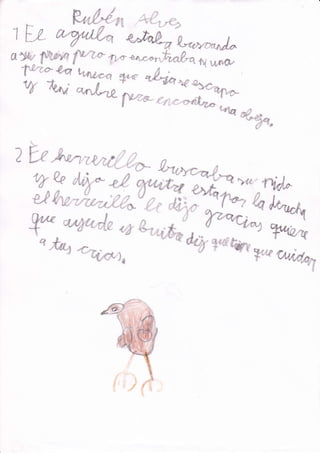 Rubén Alves
1 El aguila estaba buscando
a su presa pero no encontraba ni una
pero la unica que abia se escapo
y teni anbre pero encontro una obeja.
2 El herrerillo buscaba su nido
y le dijo el guitre esta por la derecha
el herrerillo le dijo gracias quiere
que ayude y buitre dij que tiene que cuidar
a tus crias.